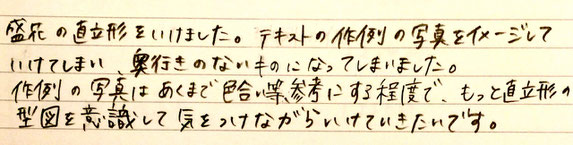 盛花の直立形をいけました。テキストの作例の写真をイメージして
いけてしまい、奥行きのないものになってしまいました。
作例の写真はあくまで色合い等、参考にする程度で、もっと直立形の
型図を意識して気をつけながらいけていきたいです。